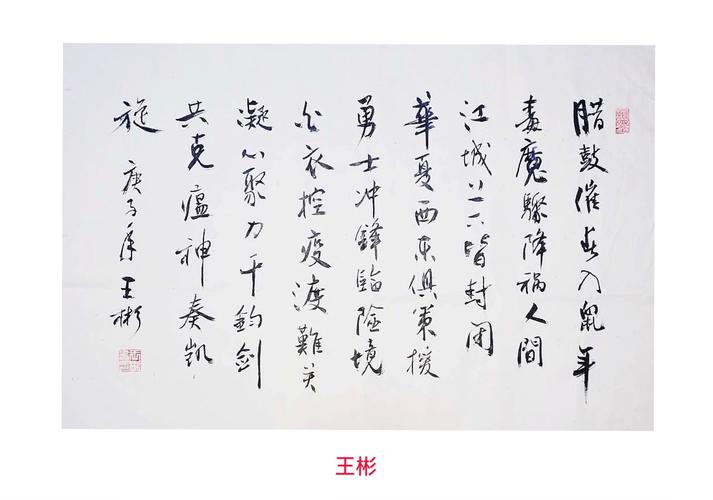 腊鼓催春入鼠年
毒魔驟降祸人間
江城上下皆封闭
華夏西东俱策援
勇士冲鋒蹈险境
白衣控疫渡難关
凝心聚力千鈞劍
共克瘟神奏凱
旋 庚子年王彬
王彬